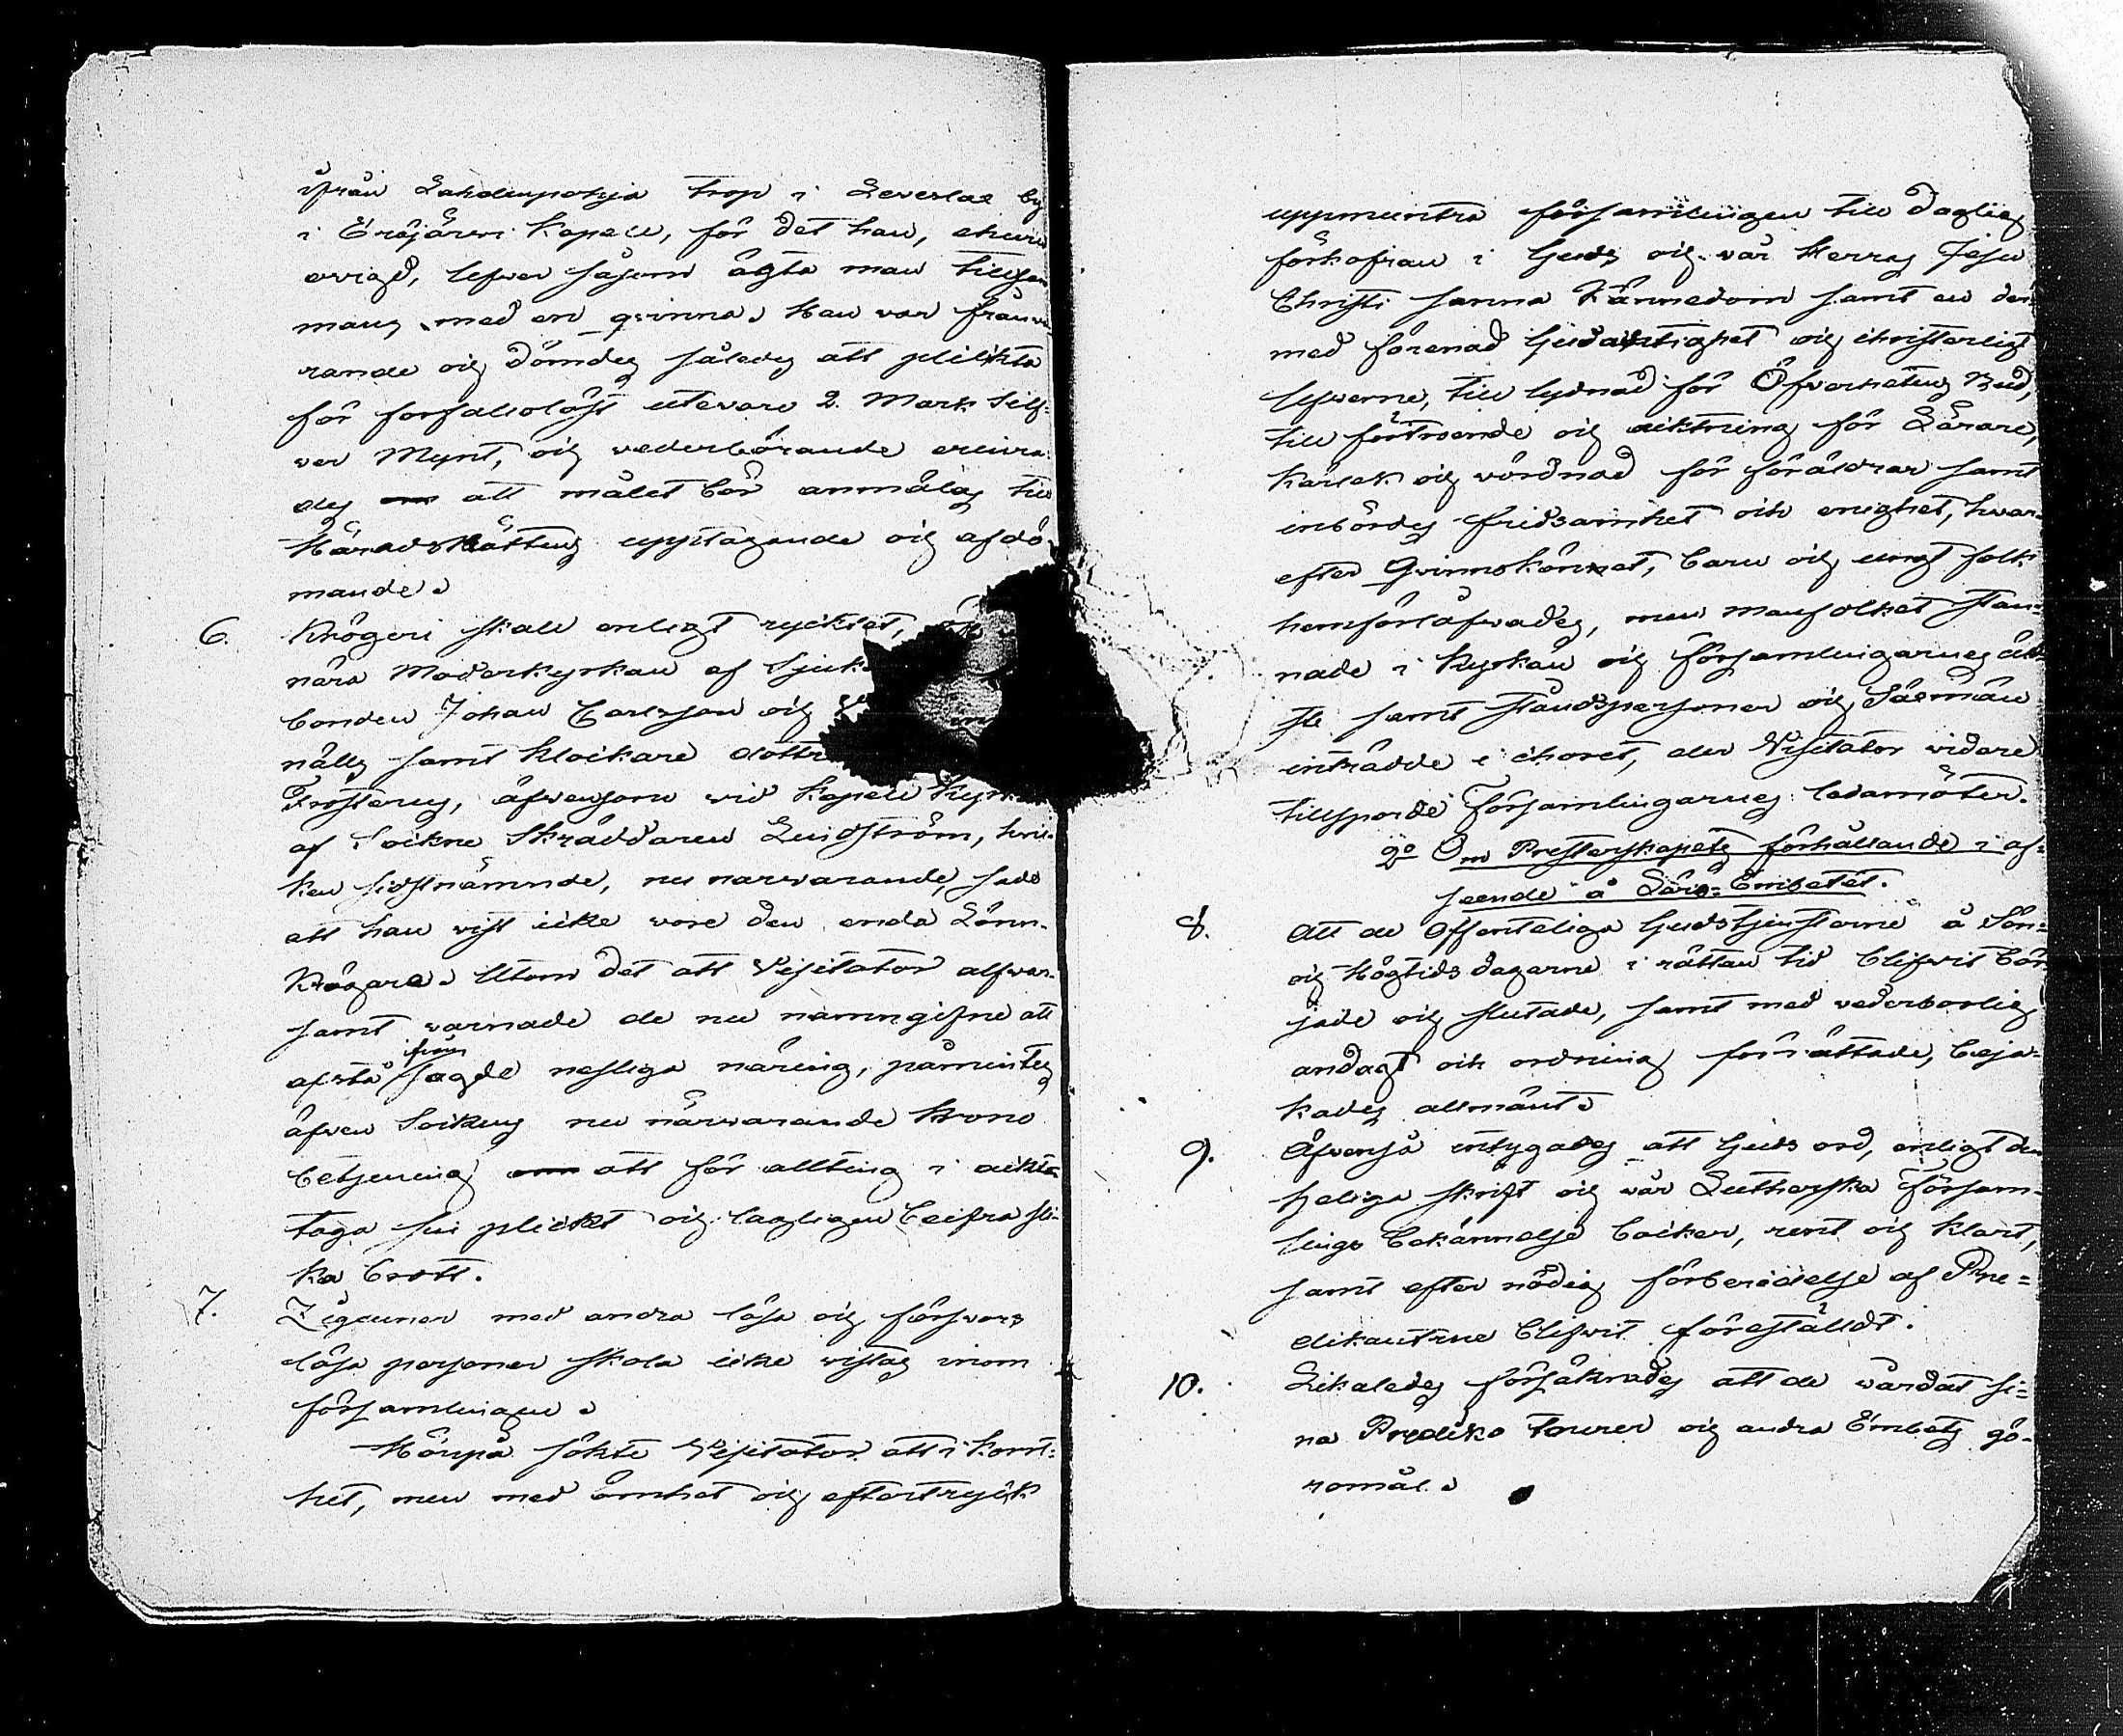 ifrån Lahdenpohja torp i Leveslax by
i Eräjärvi Kapell, för det han, ehuru
ovigd, lefver såsom ägta man tillsam
mans med en qvinna. Han var frånva
rande och dömdes således att plikta
för forfallolöst utevaro 2. Mark Silf-
ver Mynt, och vederbörande erinra-
des att målet bör anmälas till
HäradsRättens upptagande och afdö-
mande.
6. Krögeri skall enligt ryktet,
nära Moderkyrkan af Sjuk
bonden Johan Carlsson och
nälls samt Klockare dottr
Frosterus, äfvensom vid Kapell Kyrk
af Sockne Skräddaren Lindström, hvil-
ken sistnämnde, nu närvarande, sade
att han visst icke vore den enda Lönn-
Krögare. Utom det att Visitator alfvar-
samt varnade de nu namngifne att
från
afstå sagde nesliga näring, påmintes
äfven Sockens nu närvarande Krono
betjening att för allting i ackt
taga sin plickt och lagligen beifra sli-
ka brott.
7. Zigeuner med andra lösa och försvars
lösa personer skola icke vistas inom
församlingen.
Härpå sökte Visitator att i kort-
het, men med ömhet och eftertryck
uppmuntra församlingen till daglig
förkofran i Guds och vår Herras Jesu
Christi sanna Kännedom samt en der-
med förenad Gudaktighet och christerligt
lefverne, till lydnad för Öfverhetens Bud,
till förtroende och acktning för Lärare,
Kärlek och vördnad för föräldrar samt
inbördes fridsamhet och enighet, hvar-
efter Qvinnokönnet, barn och ungt folk
hemförlofvades, men manfolket stan-
nade i Kyrkan och församlingarnes äld-
ste samt ståndspersoner och Säxmän
inträdde i choret, der Visitator vidare
tillsporde församlingarnes ledamöter.
2o Om Presterskapets förhållande i af-
seende å Läro-Embetet.
8. Att de Offenteliga Gudstjensterne å Sön-
och Högtids dagarne i rättan tid blifvit bör
jade och slutade, samt med vederborlig
andagt och ordning förrättade, beja-
kades allmänt.
9. Äfvenså intygades att Guds ord, enligt den
heliga skrift och vår Lutherska försam-
lings bekännelse böcker, rent och klart,
samt efter nödig förberedelse af Pre=
dikanterne blifvit föreställdt.
10. Likaledes försäkrades att de vårdat si-
na Prediko tourer och andra Embets gö-
romål.